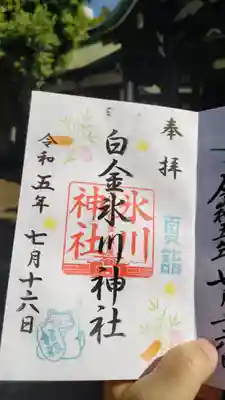 奉拝
夏詣
白金氷川神社
氷川
神社
令和五年
七月十六日